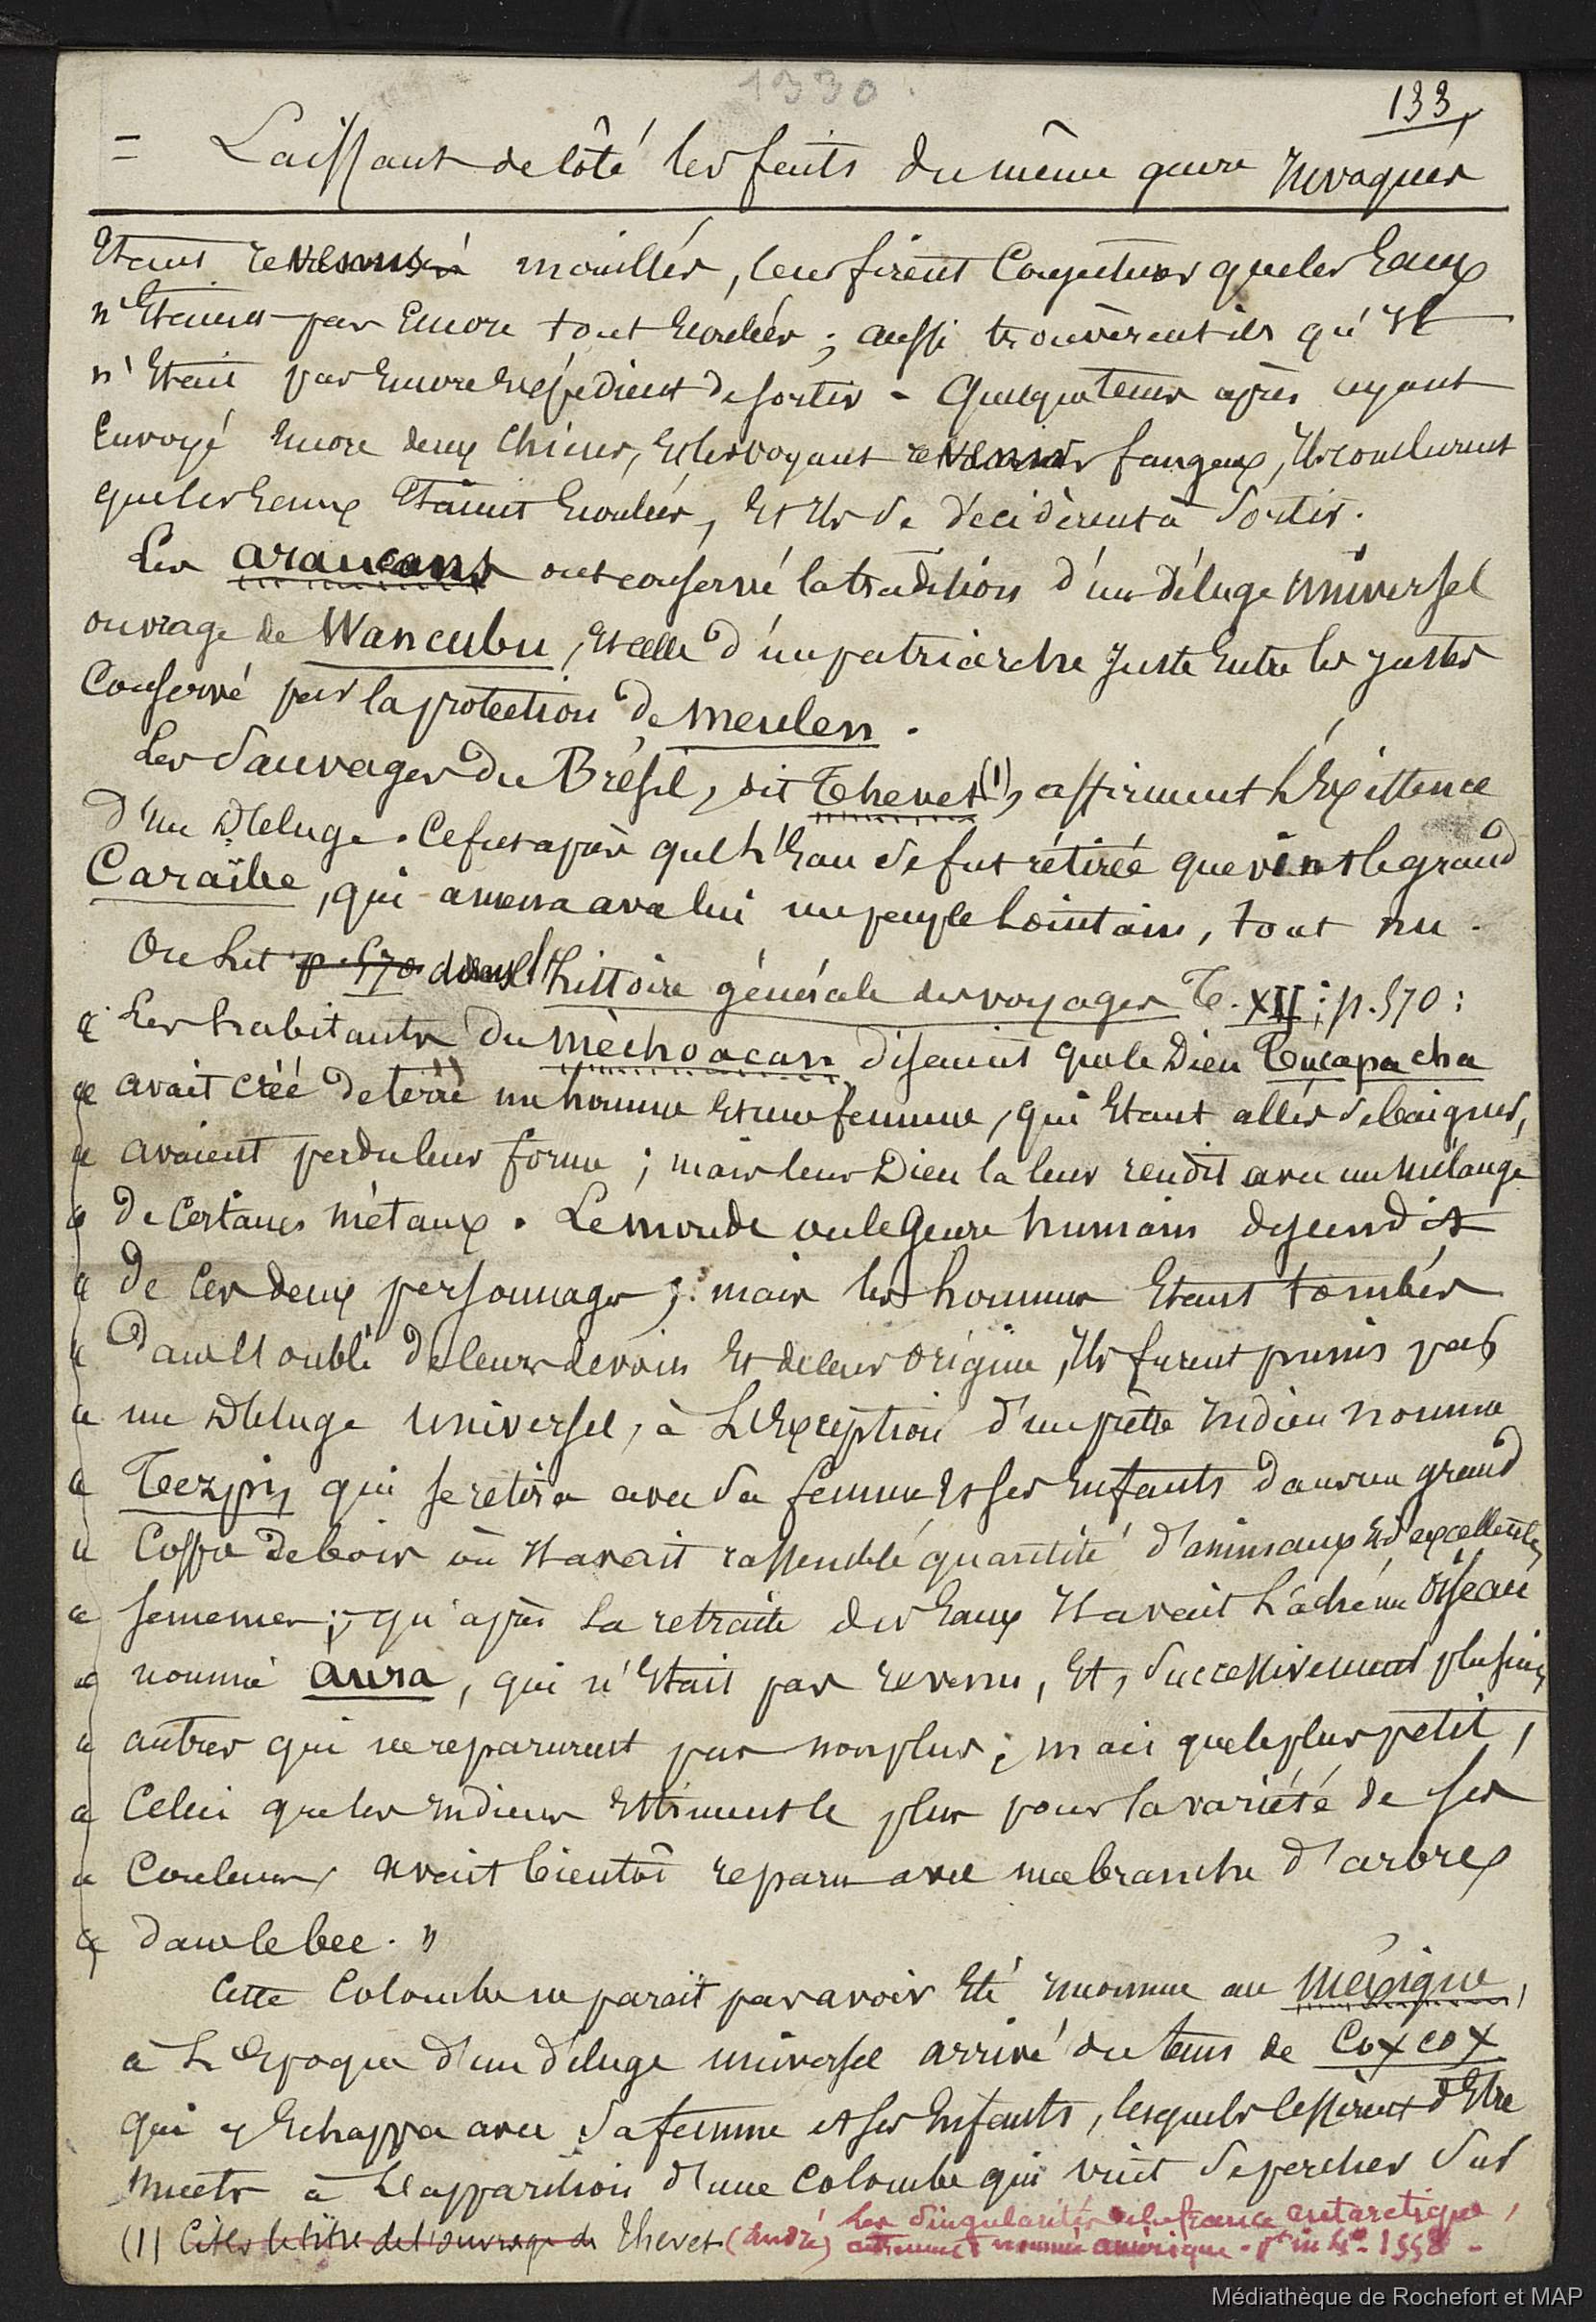 1330.
133,
= Laissant de côté les faits du même genre
Etant revenus mouillés, leur firent conjecturer que les Eaux
n'Etaient pas Encore tout Ecoulées ; aussi trouvèrent ils qu'Il
n'Etait pas Encore Expédient de sortir - Quelque tems après ayant
Envoyé Encore deux Chiens, Et les voyant revenir fangeux, Ils conclurent
que les Eaux Etaient Ecoulées, Et Ils se décidèrent à sortir.
Les araucans ont conservé la tradition d'un déluge universel
ouvrage de Wancubu, Et celle d'un patriarche Juste Entre les justes
Conservé par la protection de Meulen.
Les Sauvages du Brésil, dit Thevet (1), affirment L'Existence
d'un Déluge. Ce fut après que L'Eau se fut rétirée que vint le grand
Caraïbe, qui amena avec lui un peuple Lointain, tout nu.
On Lit p. 570 dans l'histoire générale des voyages T. XII ; p. 570 :
« Les habitants du mèchoacan disaient que le Dieu Tucapacha
« avait créé de terre un homme Et une femme, qui Etant allés se baigner,
« avaient perdu leur forme ; mais leur Dieu la leur rendit avec un mélange
« de certains métaux. Le monde ou le Genre humain descendit
« de Ces deux personnages ; mais les hommes Etant tombés
« Dans L'oubli de leurs devoirs Et de leur origine, Ils furent punis par
« un Déluge universel, à L'Exception d'un prêtre Indien nommé
« Tezpi, qui se retira avec sa femme Et ses Enfants dans un grand
« Coffre de bois où Il avait rassemblé quantité d'animaux Et d'excellentes
« semences ; qu'après La retraite des Eaux Il avait Lâché un Oiseau
« nommé aura, qui n'Etait pas revenu, Et, Successivement plusieurs
« autres qui ne reparurent pas non plus ; mais que le plus petit,
« Celui que les Indiens Estiment le plus pour la variété de ses
« Couleurs, avait bientôt reparu avec une branche d'arbre
« dans le bec. »
Cette Colombe ne parait pas avoir Eté inconnue au Méxique,
à L'Epoque d'un déluge universel arrivé du tems de Coxcox
qui y Echappa avec sa femme et ses Enfants, lesquels cessèrent d'Etre
muets à L'apparition d'une Colombe qui vint se percher Sur
(1) Citer le titre de l'ouvrage de Thevet (André) Les Singularités de la france antarctique,
autrement nommée amérique. in 4° 1558 -
Médiathèque de Rochefort et MAP